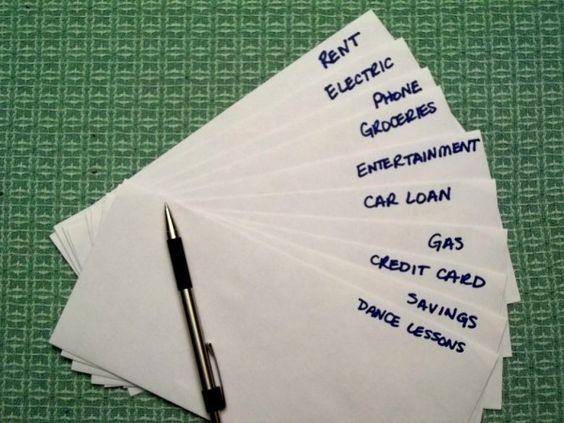 RENT
ELECTRIC
PHONE
GROCERIES
ENTERTAINMENT
CAR LOAN
GAS
CREDIT CARD
SAVINGS
DANCE LESSONS